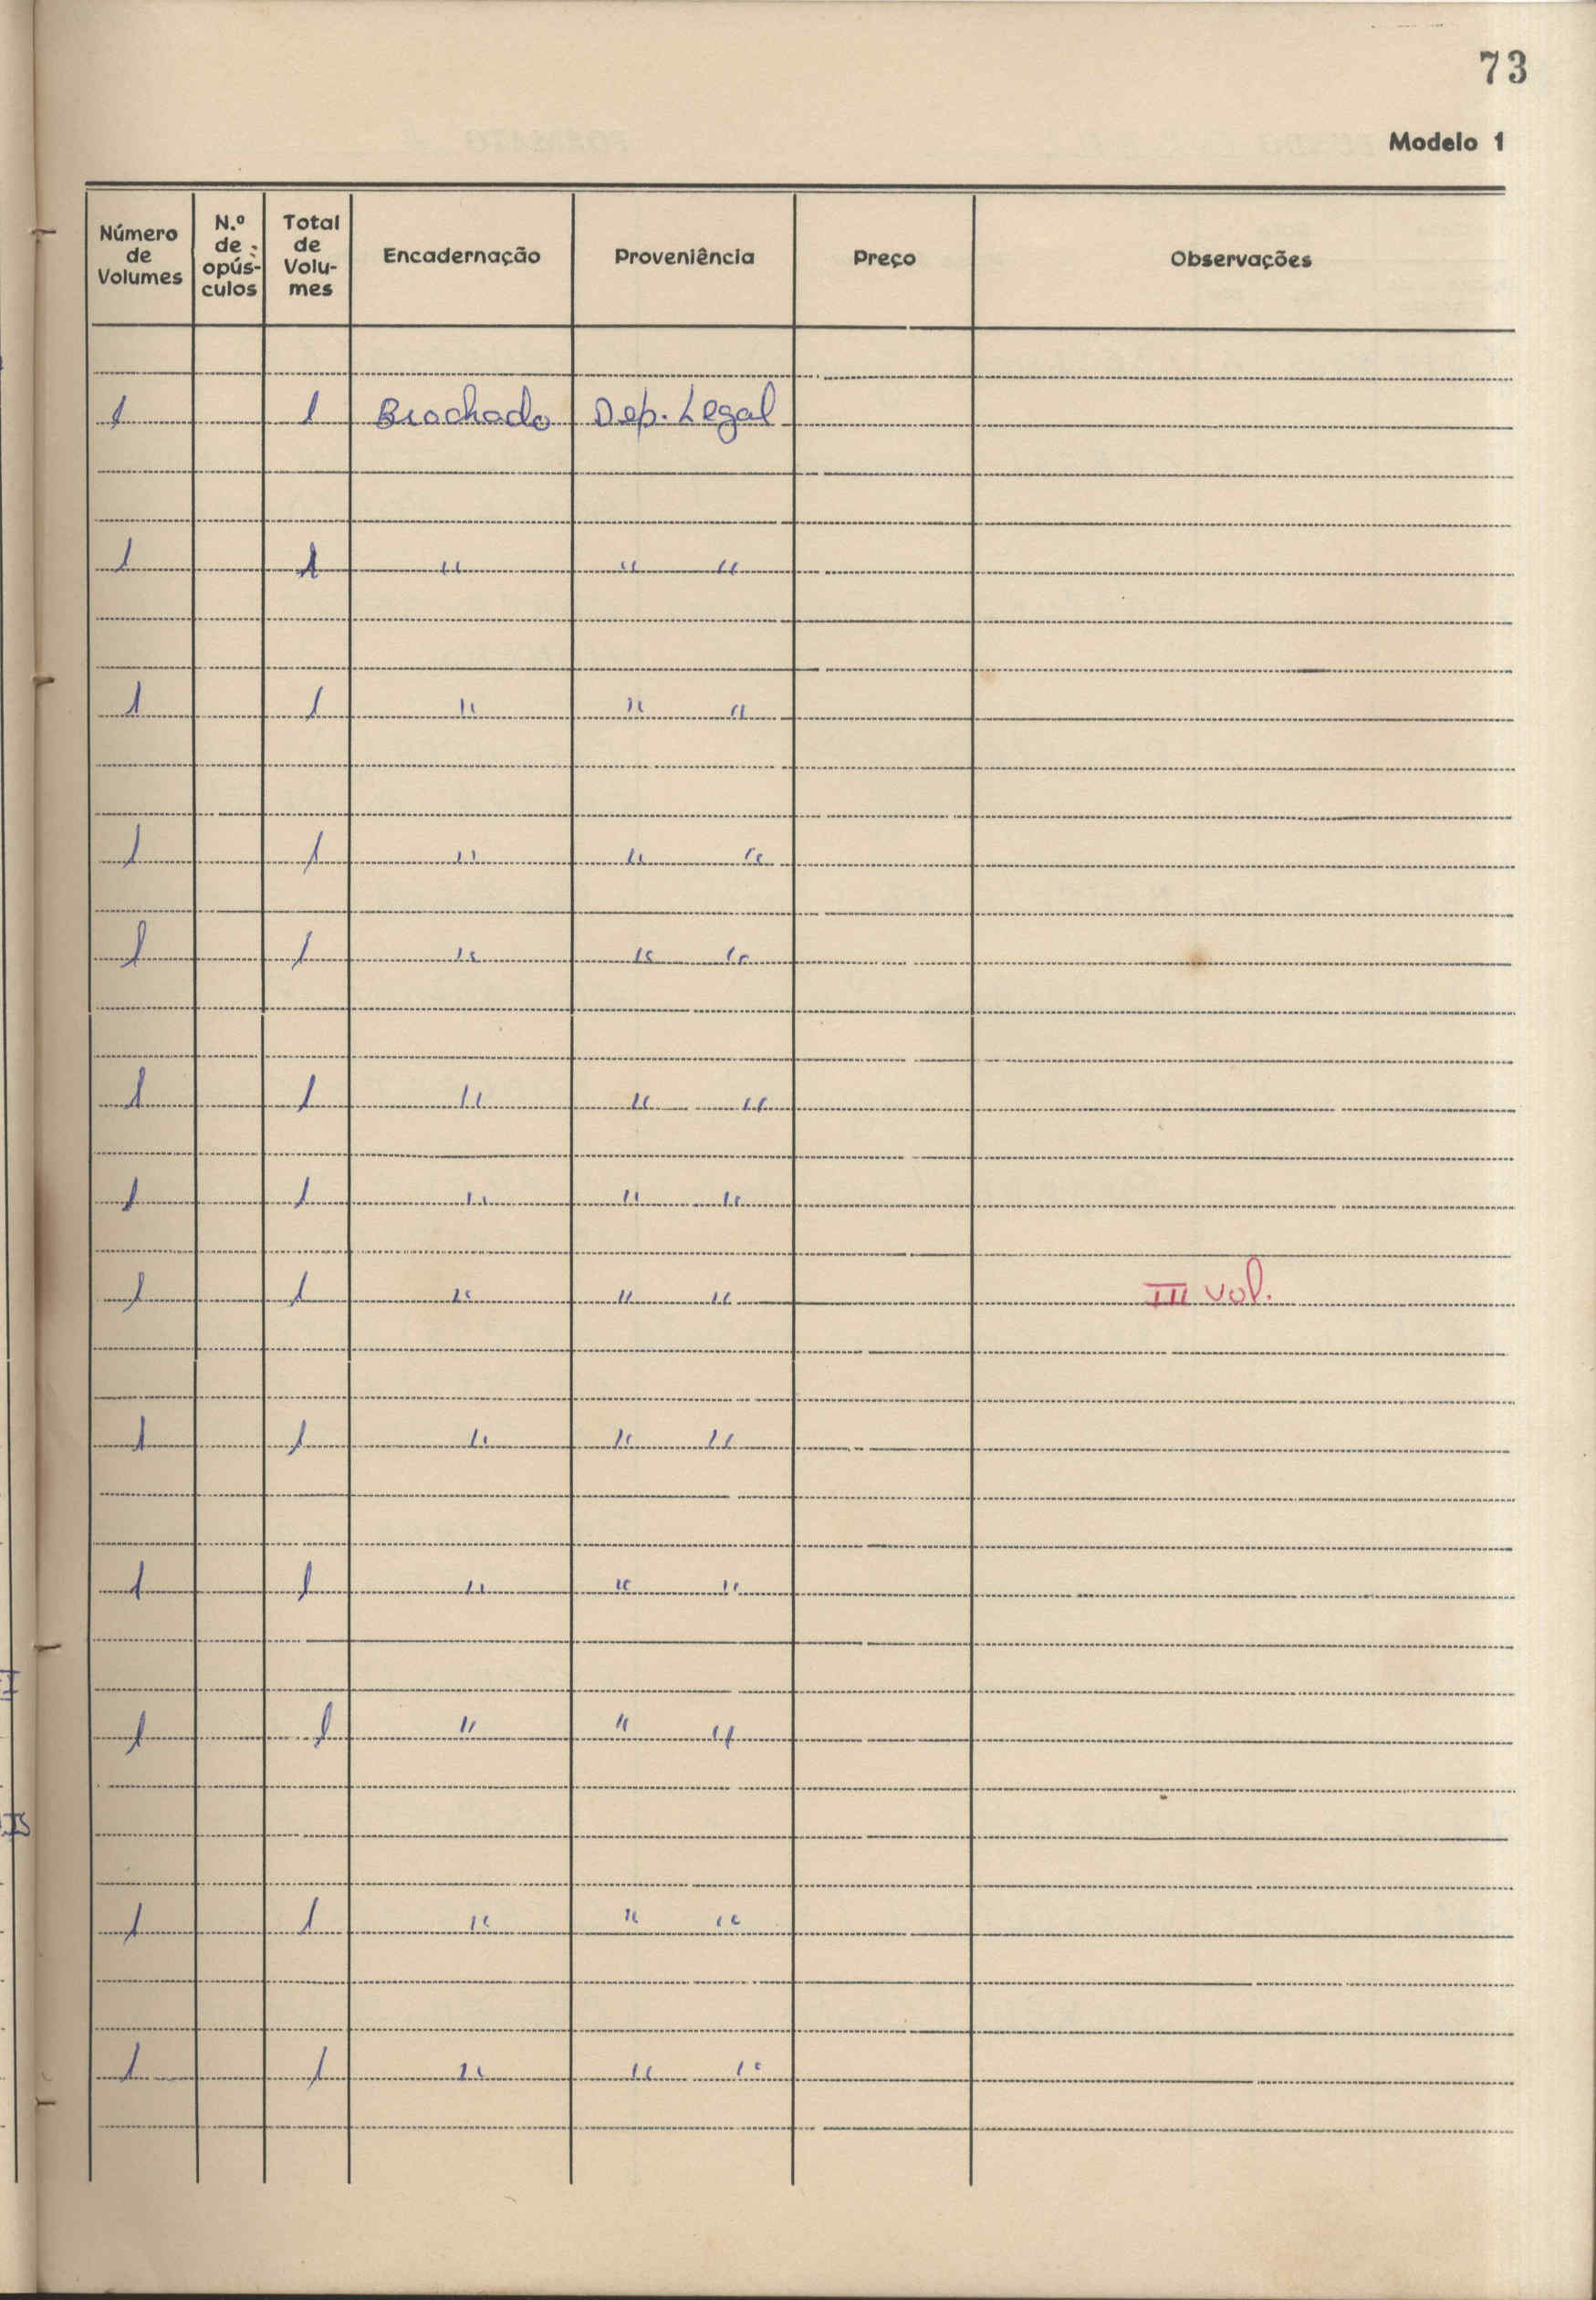 73
Modelo 1
Número de Volumes | N.º de opús-culos | Total de Volu-mes | Encadernação | Proveniência | Preço | Observações
1 1 Brochado Dep. Legal
1 1 " " "
1 1 " " "
1 1 " " "
1 1 " " "
1 1 " " "
1 1 " " "
1 1 " " " III vol.
1 1 " " "
1 1 " " "
1 1 " " "
1 1 " " "
1 1 " " "